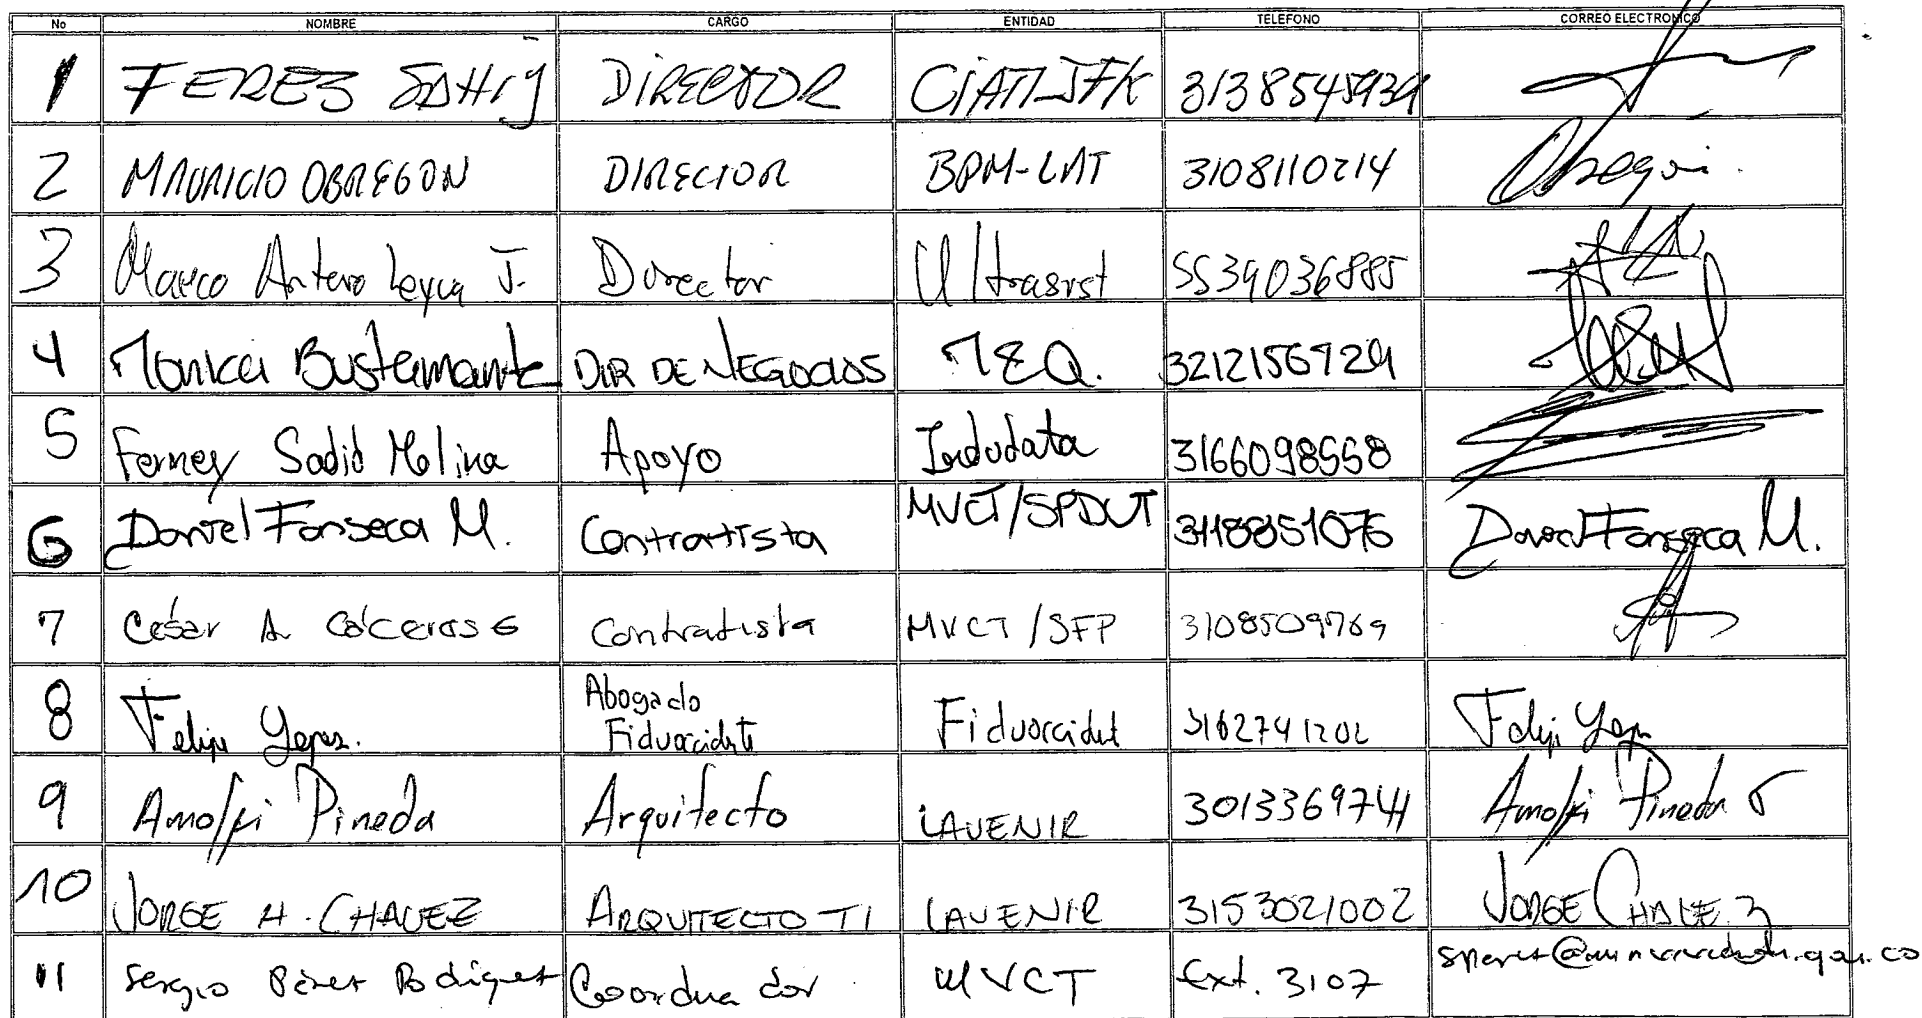 No NOMBRE CARGO ENTIDAD TELEFONO CORREO ELECTRONICO
1 FEREZ SAHIJ DIRECTOR CIATI-JFK
2 MAURICIO OBREGON DIRECTOR BPM-LAT 3108110214 Obregón
3 Marco Antero Leyva J. Director Ultrasist 5539036885
4 Monica Bustamante DIR DE NEGOCIOS 3212156729
5 Ferney Sadid Molina Apoyo Indudata 3166098558
6 Daniel Fonseca M. Contratista MVCT/SPDUT 3118851076 Daniel Fonseca M.
7 César A Cáceres G Contratista MVCT/SFP 3108509769
8 Felipe Yepes. Abogado Fiduoccidente Fiduoccident 3162741202 Felipe Yepes
9 Amolfi Pineda Arquitecto LAVENIR 3013369741 Amolfi Pineda
10 JORGE H. CHAVEZ ARQUITECTO TI LAVENIR 3153021002 JORGE CHAVEZ
11 Sergio Pérez Rodriguez Coordinador MVCT Ext. 3107